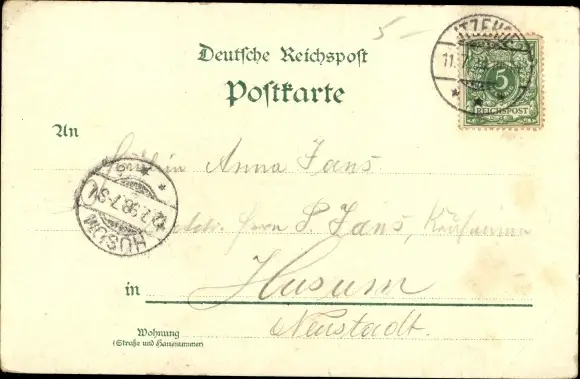 5-
ITZEHOE
11.7.98
5
REICHSPOST
Deutsche Reichspost
Postkarte
An
Fräulein Anna Jans
Adr. Herrn P. Jans, Kaufmann
HUSUM
12.7.98.7-8V
in Husum
Neustadt.
Wohnung
(Straße und Hausnummer)